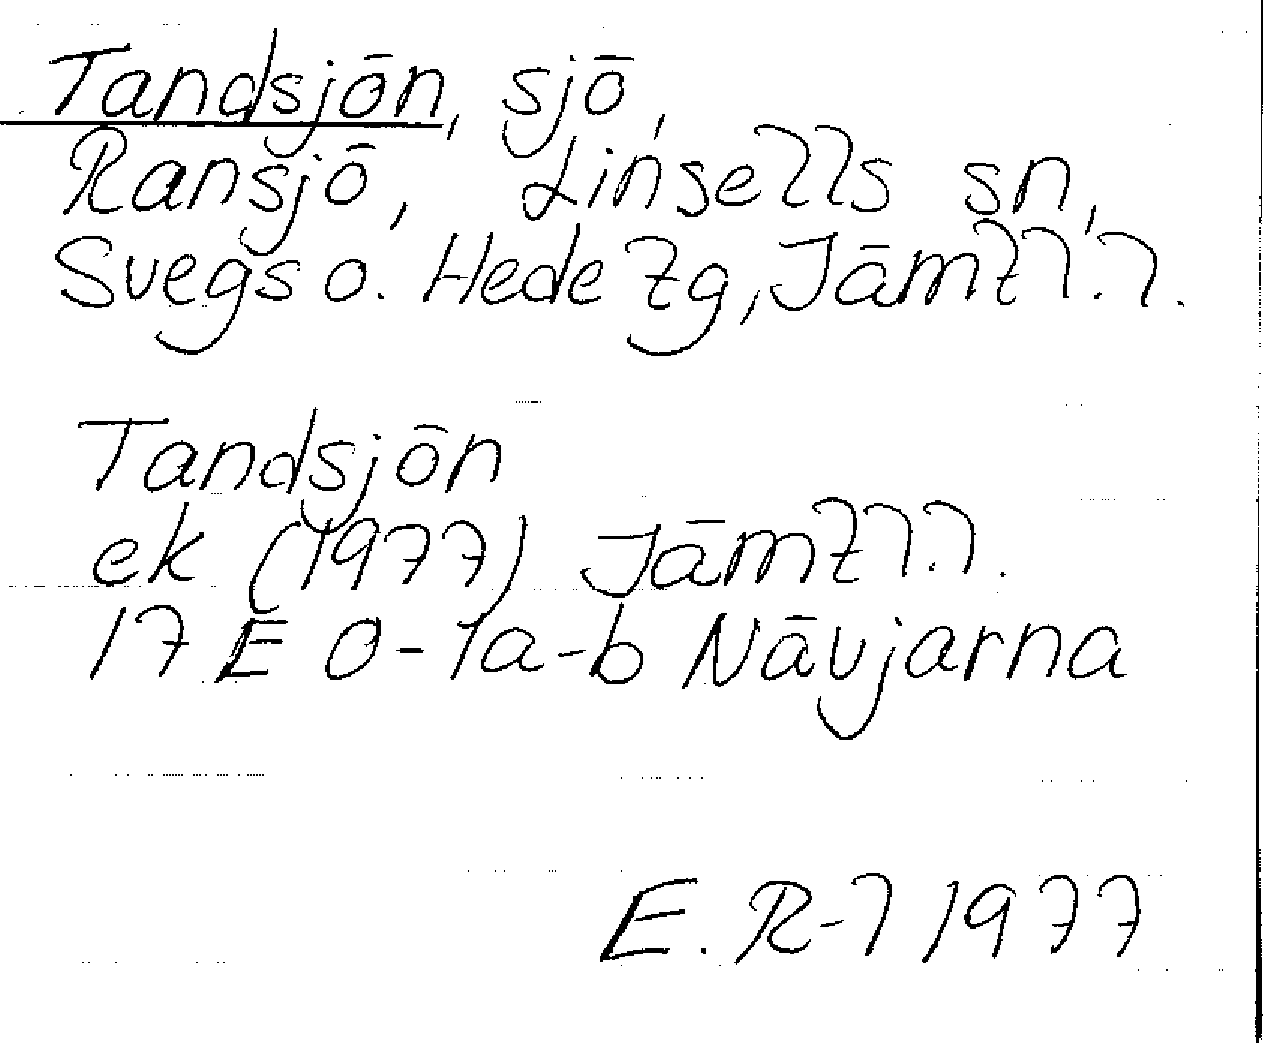 Tandsjön, sjö,
Ransjö, Linsells sn,
Svegs o. Hede tg, Jämtl.l.
Tandsjön
ek (1977) Jämtl.l.
17 E 0-1a-b Nävjarna
E. R-l 1977